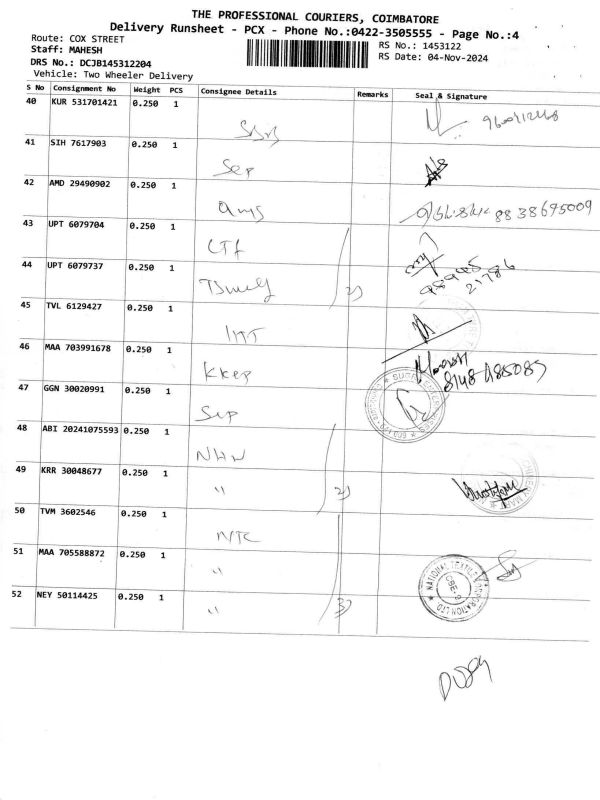 THE PROFESSIONAL COURIERS, COIMBATORE
Delivery Runsheet - PCX - Phone No.:0422-3505555 - Page No.:4
Route: COX STREET
RS No.: 1453122
Staff: MAHESH
RS Date: 04-Nov-2024
DRS No.: DCJB145312204
Vehicle: Two Wheeler Delivery
S No Consignment No Weight PCS Consignee Details Remarks Seal & Signature
40 KUR 531701421 0.250 1
41 SIH 7617903 0.250 1 Sep
42 AMD 29490902 0.250 1 ams 8838695009
43 UPT 6079704 0.250 1 CTF
44 UPT 6079737 0.250 1 2)
45 TVL 6129427 0.250 1
46 MAA 703991678 0.250 1 KKep
47 GGN 30020991 0.250 1 Sep
48 ABI 20241075593 0.250 1 NHW
49 KRR 30048677 0.250 1 " 2)
50 TVM 3602546 0.250 1 NTC
51 MAA 705588872 0.250 1 "
52 NEY 50114425 0.250 1 " 3)
NATIONAL TEXTILE CORPORATION LTD